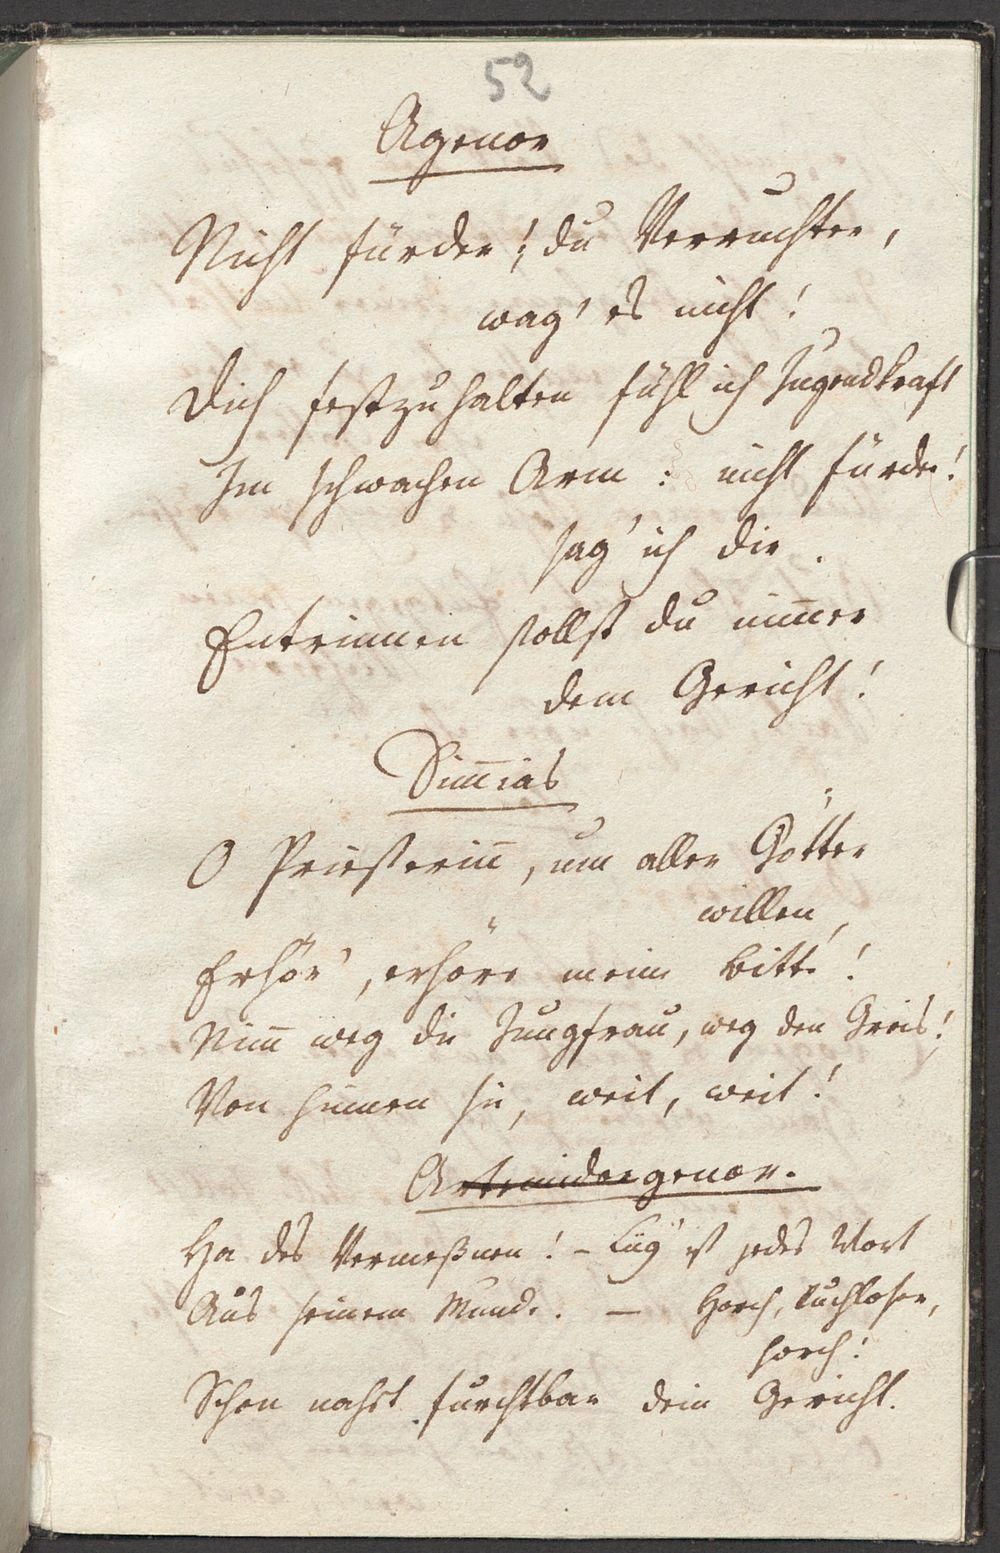 52
Agenor
Nicht fürder! du Verruchter,
wag' es nicht!
Dich festzuhalten fühl ich Jugendkraft
Im schwachen Arm: nicht fürder!
sag' ich dir.
Entrinnen sollst du nim̅er
dem Gericht!
Sim̅ias
O Priesterin̅, um aller Götter
willen,
Erhör', erhöre meine Bitte!
Nim̅ weg die Jungfrau, weg den Greis!
Von hinnen sie, weit, weit!
Artemidorgenor.
Ha des Vermeßnen! – Lüg' ist jedes Wort
Aus seinem Munde. — Horch, Ruchloser,
horch!
Schon nahet furchtbar dein Gericht.